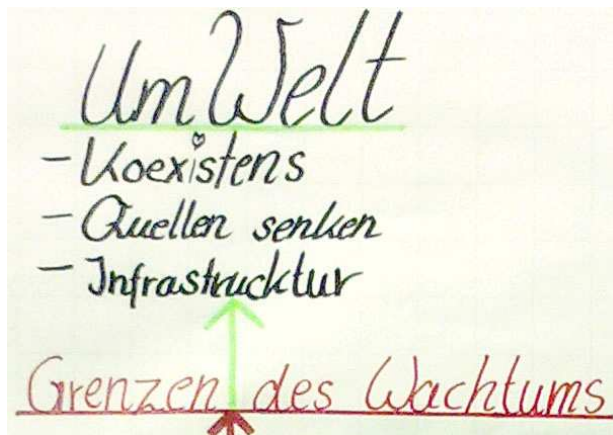 UmWelt
- Koexistens
- Quellen senken
- Infrastrucktur
Grenzen des Wachtums